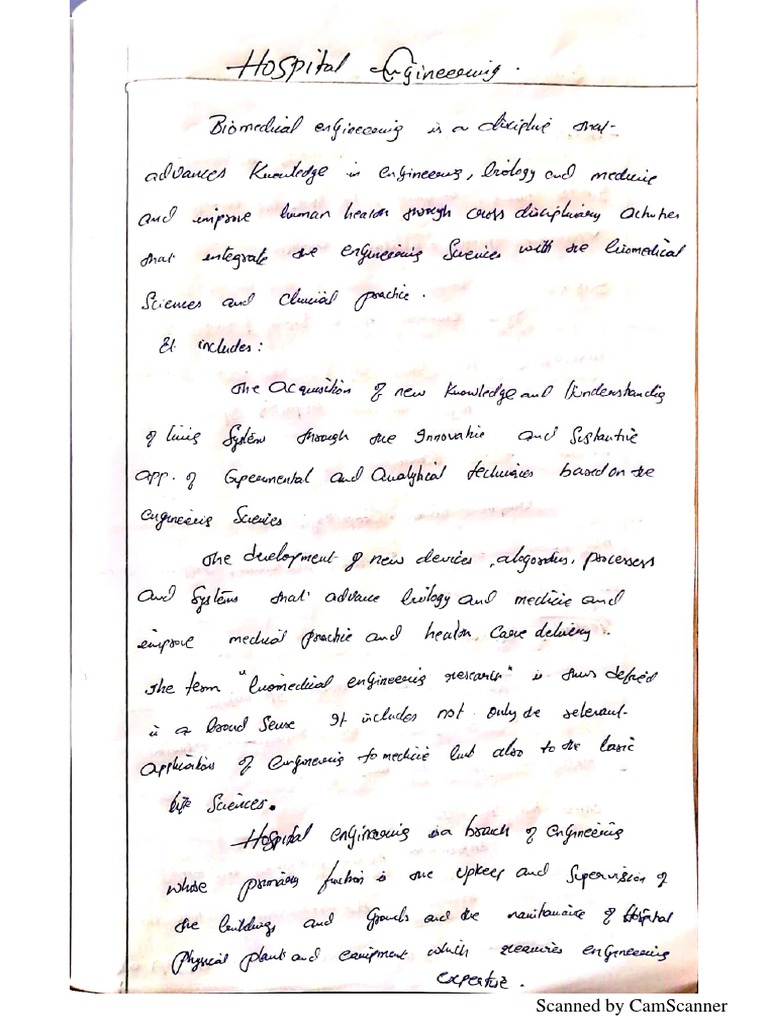 Hospital Engineering.
Biomedical engineering is a discipline that
advances Knowledge in engineering, biology and medicine
and improve human health through cross disciplinary activities
that integrate the engineering Sciences with the biomedical
Sciences and clinical practice.
It includes:
The acquisition of new Knowledge and Understanding
of living System through the Innovative and Sustantive
app. of Experimental and Analytical techniques based on the
engineering Sciences
The development of new devices, algorithms, processess
and Systems that advance biology and medicine and
improve medical practice and health care delivery.
The term "biomedical engineering research" is thus defined
in a broad Sense It includes not only the relevant
application of engineering to medicine but also to the basic
life Sciences.
Hospital engineering is a branch of engineering
whose primary function is the upkeep and Supervision of
the buildings and Grounds and the maintanance of Hospital
Physical plant and equipment which requires engineering
expertise.
Scanned by CamScanner